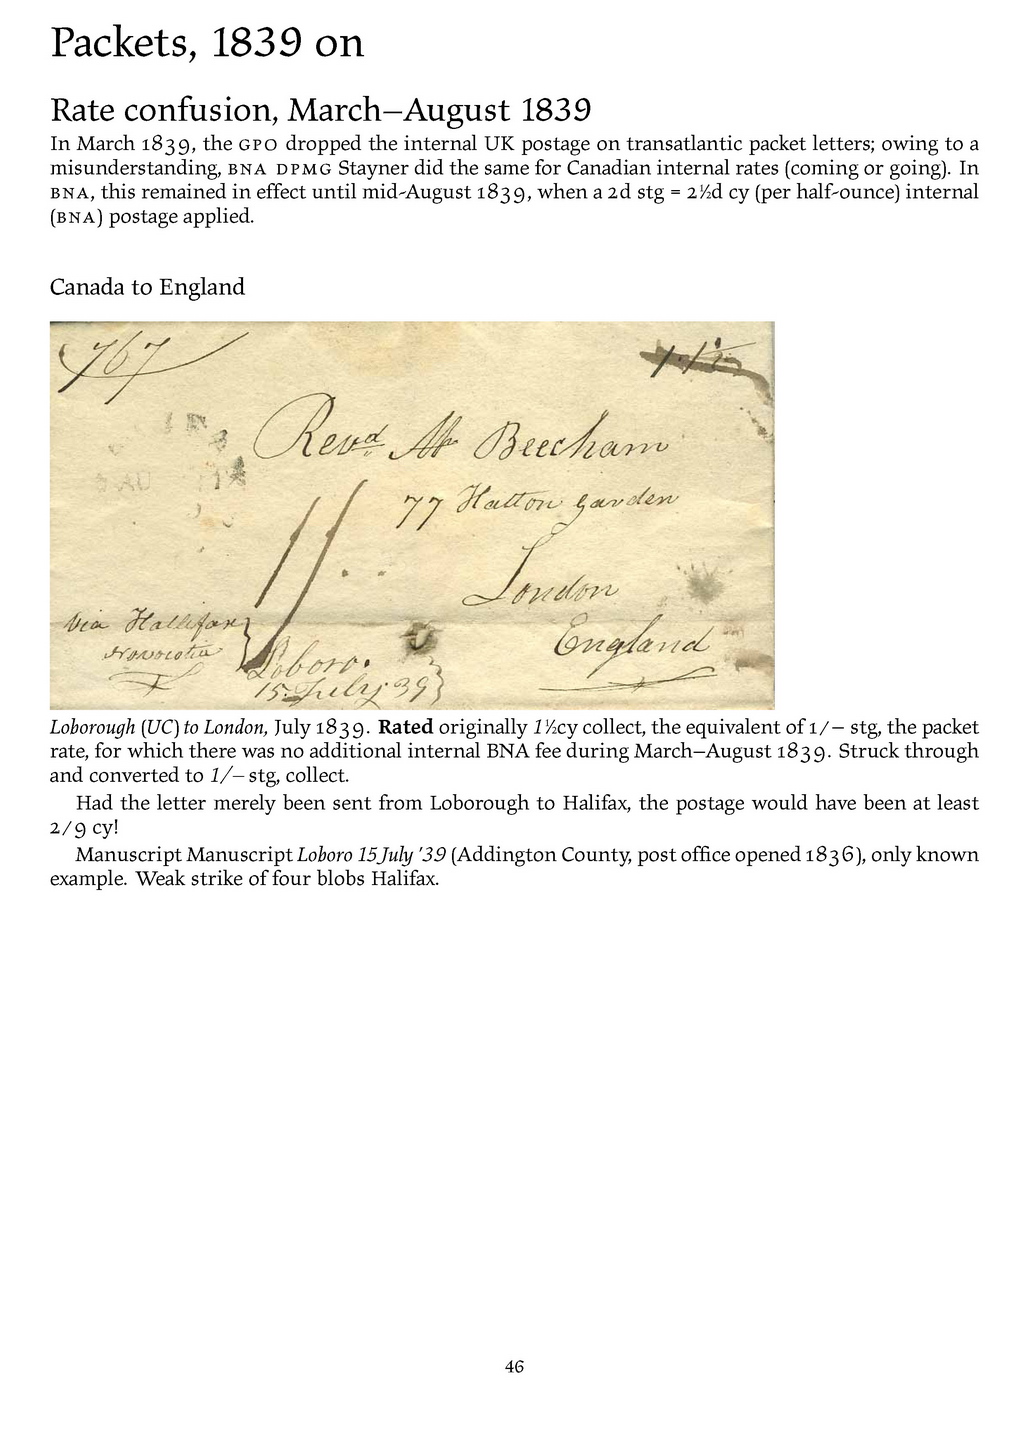 Packets, 1839 on
Rate confusion, March–August 1839
In March 1839, the GPO dropped the internal UK postage on transatlantic packet letters; owing to a
misunderstanding, BNA DPMG Stayner did the same for Canadian internal rates (coming or going). In
BNA, this remained in effect until mid-August 1839, when a 2d stg = 2½d cy (per half-ounce) internal
(BNA) postage applied.
Canada to England
767
1.1½
Revd Mr Beecham
77 Hatton Garden
London
England
via Hallifax
Novocotia
Loboro.
15 July 39
Loborough (UC) to London, July 1839. Rated originally 1½cy collect, the equivalent of 1/– stg, the packet
rate, for which there was no additional internal BNA fee during March–August 1839. Struck through
and converted to 1/– stg, collect.
Had the letter merely been sent from Loborough to Halifax, the postage would have been at least
2/9 cy!
Manuscript Manuscript Loboro 15 July '39 (Addington County, post office opened 1836), only known
example. Weak strike of four blobs Halifax.
46